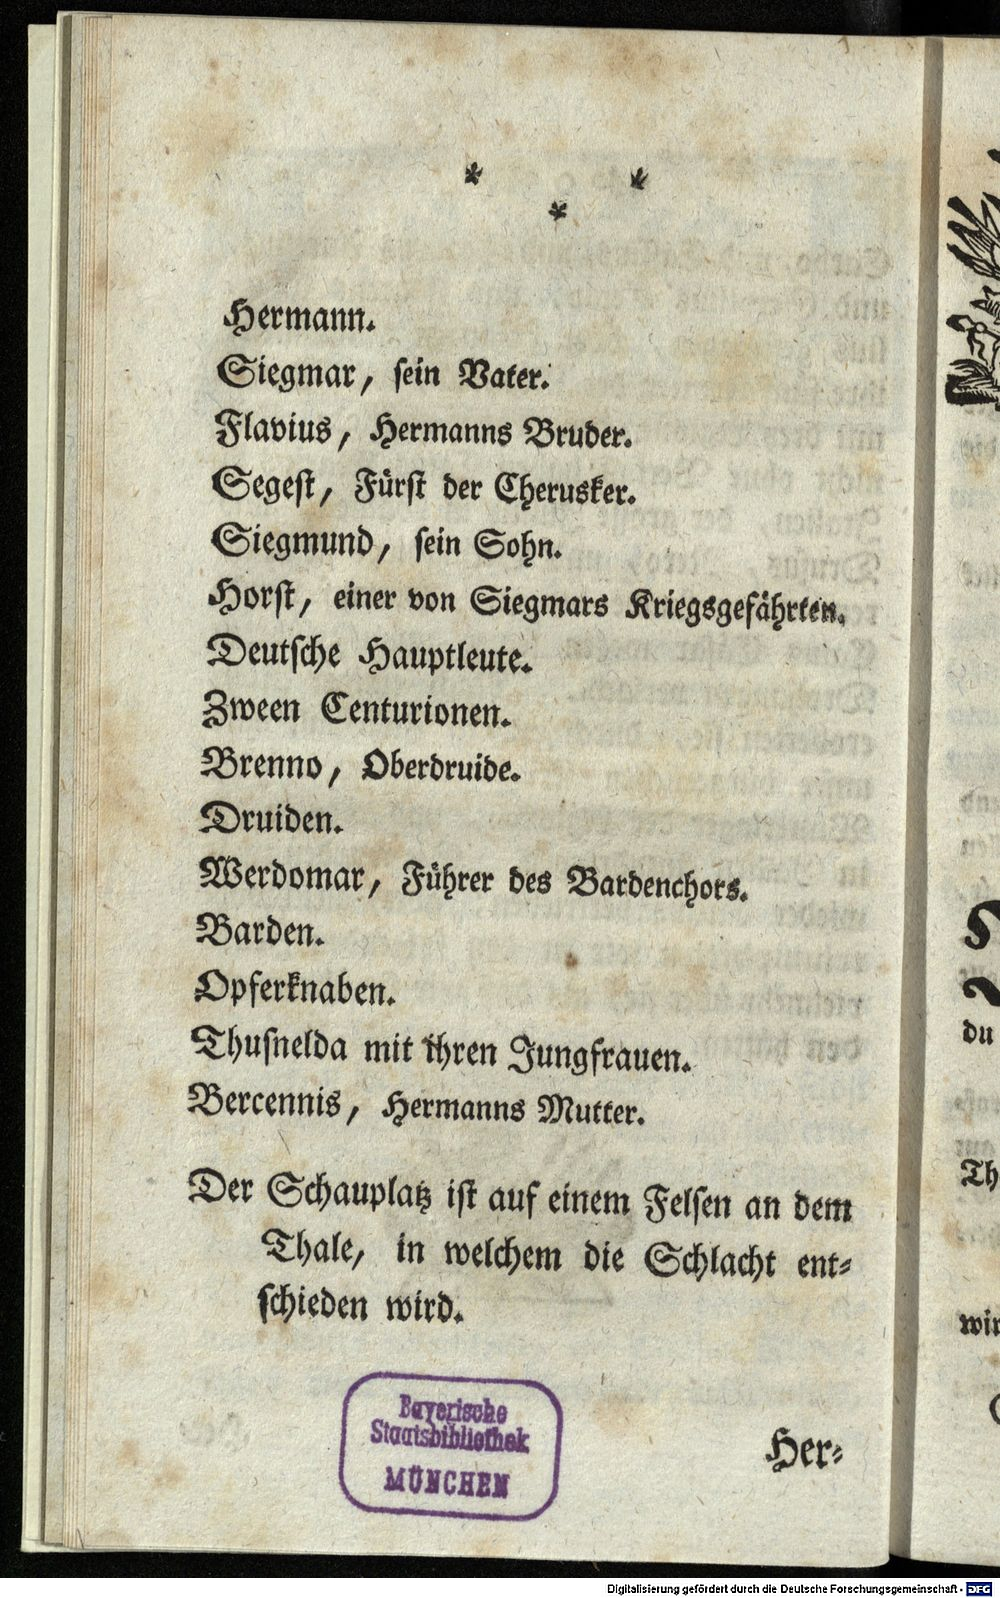 * *
*
Hermann.
Siegmar, sein Vater.
Flavius, Hermanns Bruder.
Segest, Fürst der Cherusker.
Siegmund, sein Sohn.
Horst, einer von Siegmars Kriegsgefährten.
Deutsche Hauptleute.
Zween Centurionen.
Brenno, Oberdruide.
Druiden.
Werdomar, Führer des Bardenchors.
Barden.
Opferknaben.
Thusnelda mit ihren Jungfrauen.
Bercennis, Hermanns Mutter.
Der Schauplatz ist auf einem Felsen an dem
Thale, in welchem die Schlacht ent-
schieden wird.
Bayerische
Staatsbibliothek
MÜNCHEN
Her-
du
Th
wir
Digitalisierung gefördert durch die Deutsche Forschungsgemeinschaft - DFG